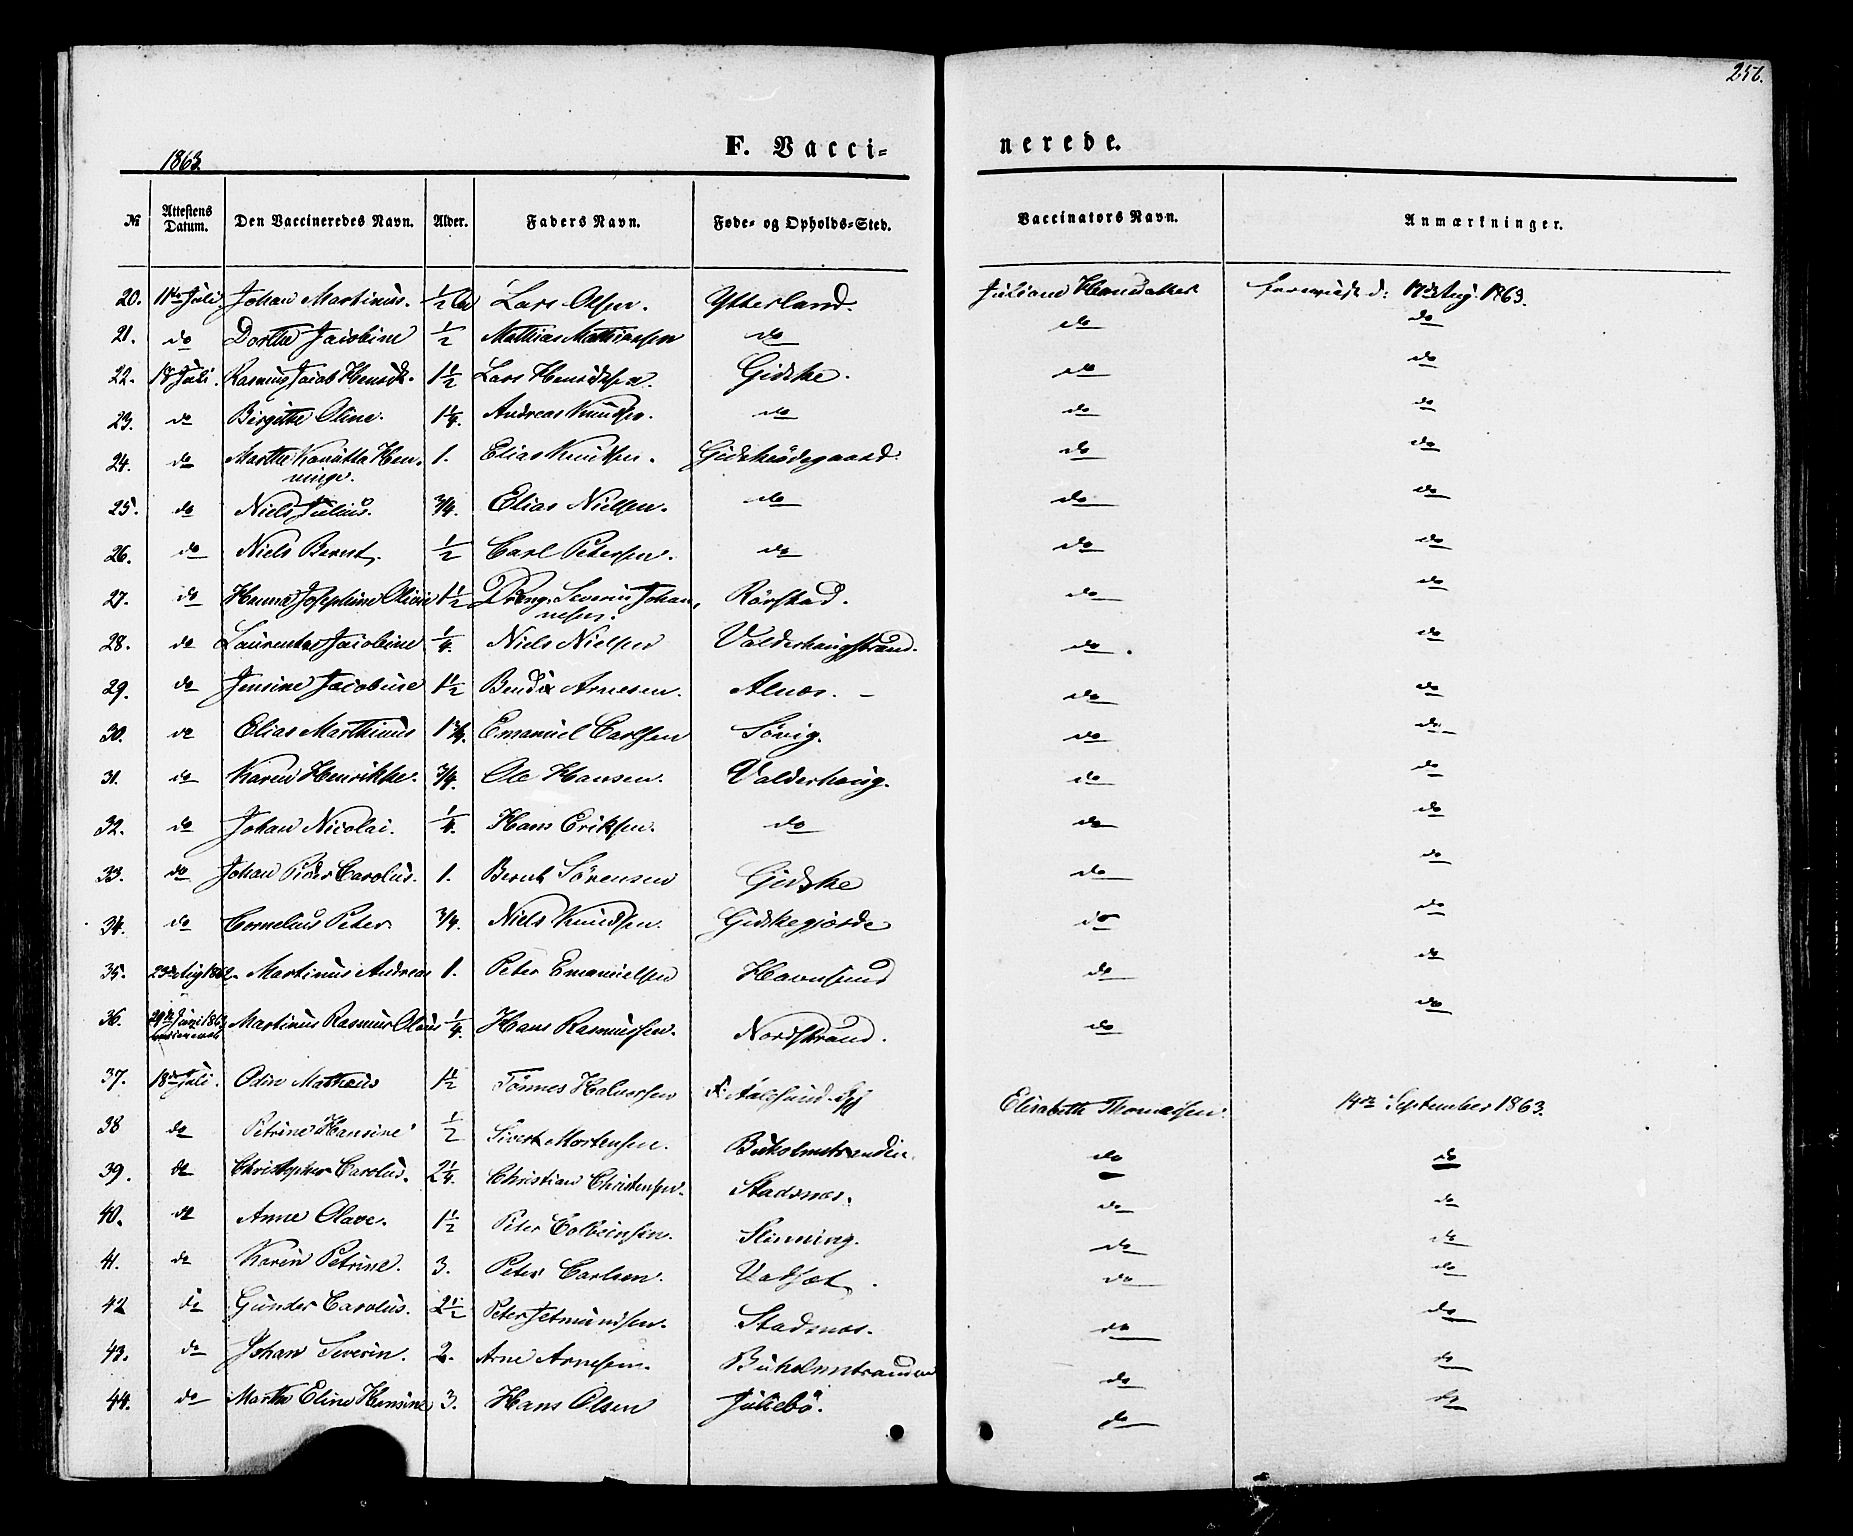 256.
1863.
F. Vacci-
nerede.
№ Attestens Datum. Den Vaccineredes Navn. Alder. Faders Navn. Føde- og Opholds-Sted. Vaccinators Navn. Anmærkninger.
20. 11te Juli Johan Martinus. 1/2 Lars Olsen. Ytterland. Juliane d: 17de Aug. 1863.
21. do Dorthe Jacobine 1/2 Mathias Mathiassen do do do
22. 18 Juli. Rasmus Jacob Henrik. 1 1/2 Lars Henriksen. Gidske. do do
23. do Birgitte Oline. 1 1/4. Andreas Knudsen. do do do
24. do Marthe Hen- 1. Elias Knutsen. Gidskeødegaard. do do
ninge.
25. do Niels Julius. 3/4. Elias Nielsen. do do do
26. do Niels Bernt. 1/2 Carl Petersen. do do do
27. do Hanna Josephine Olivie 1 1/2 Dreng. Severin Johan- Rørstad. do do
nesen.
28. do Laurentse Jacobine 1/4. Niels Nielsen Valderhaugstrand. do. do
29. do Jensine Jacobine 1 1/2 Bendix Arnesen. Alnæs. – do do
30. do Elias Marthinus 1 3/4. Emanuel Carlsen Søvig. do do
31. do Karen Henrikke. 3/4. Ole Hansen. Valderhaug. do do
32. do Johan Nicolai. 1/4. Hans Eriksen. do do do
33. do Johan Peder Carolus. 1. Bernt Sørensen Gidske do do
34. do Cornelius Peter 3/4. Niels Knudsen. Gidskegjørde do do
35. 23de Aug 1862. Martinus Andreas 1. Peter Emanuelsen Havnsund do do
36. 29de Juni 1863 Martinus Rasmus Olaus 1/4. Hans Rasmussen. Nordstrand. do do
37. 18de Juli. Odin Mathæus 1 1/2 Tönnes Halvorsen F: Aalesund. Elisabeth Thomassen. 14de September 1863.
38 do Petrine Hansine 1/2 Sivert Mortensen. Bukholmstranden. do do
39. do Christopher Carolus. 2 1/4. Christian Christensen. Stadsnæs. do do
40. do Anne Olave. 1 1/2 Peter Slinning. do do
41. do Karen Petrine. 3. Peter Carlsen. Vadsæt. do do
42 do Gunder Carolus. 2 1/2 Peter Jetmundsen. Stadsnæs. do do
43. do Johan Severin. 2. Arne Arnesen. Bukholmstranden do do
44. do Marthe Eline Hensine 3. Hans Olsen Juliebø. do do